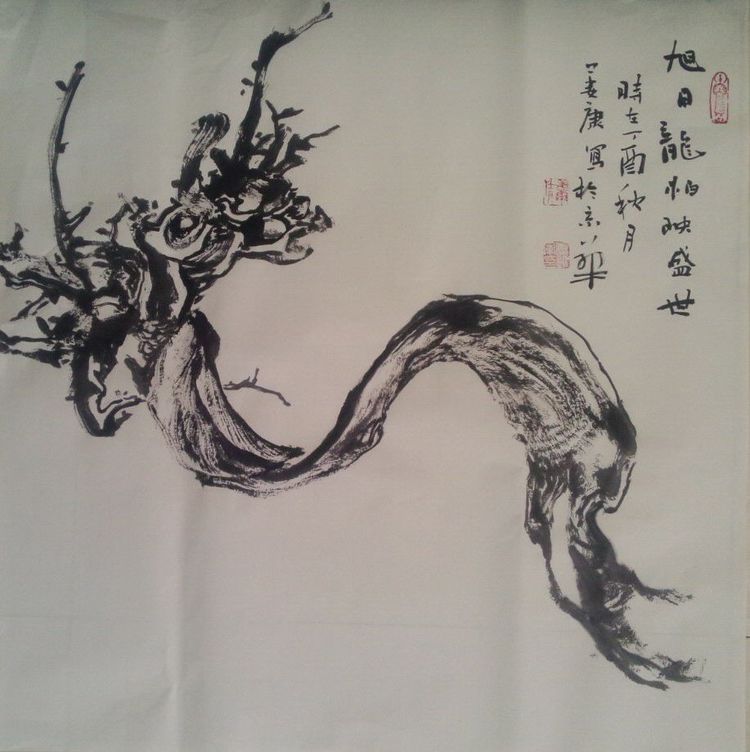 旭日龍柏映盛世
時在丁酉秋月
康寫於京華